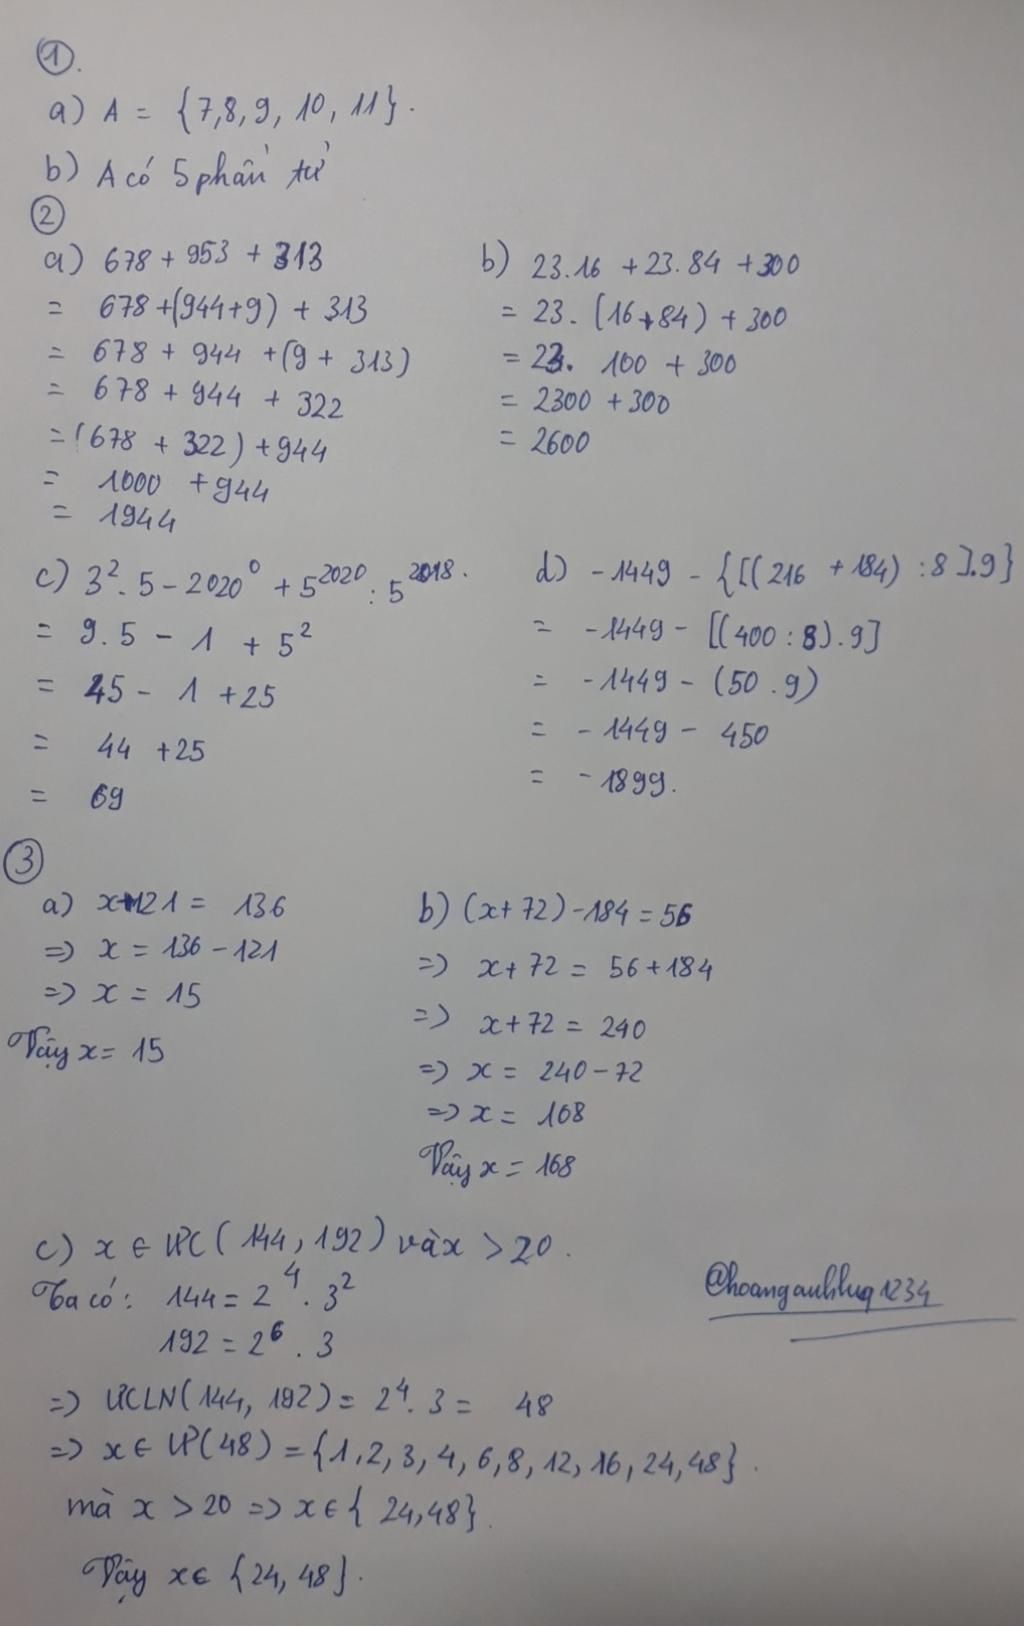 ①.
a) A = {7,8,9, 10, 11}.
b) A có 5 phần tử
②
a) 678 + 953 + 313
= 678 + (944+9) + 313
= 678 + 944 + (9 + 313)
= 678 + 944 + 322
= (678 + 322) + 944
= 1000 + 944
= 1944
b) 23.16 + 23.84 + 300
= 23. (16+84) + 300
= 23. 100 + 300
= 2300 + 300
= 2600
c) 3². 5 - 2020⁰ + 5²⁰²⁰ : 5²⁰¹⁸.
= 9.5 - 1 + 5²
= 45 - 1 + 25
= 44 + 25
= 69
d) -1449 - {[(216 + 184) : 8].9}
= -1449 - [(400 : 8). 9]
= -1449 - (50 . 9)
= -1449 - 450
= -1899.
③
a) x+121 = 136
=> x = 136 - 121
=> x = 15
Vậy x = 15
b) (x+72) - 184 = 56
=> x+72 = 56+184
=> x+72 = 240
=> x = 240 - 72
=> x = 168
Vậy x = 168
c) x ∈ ƯC(144, 192) và x > 20.
Ta có: 144 = 2⁴. 3²
192 = 2⁶. 3
=> ƯCLN(144, 192) = 2⁴. 3 = 48
=> x ∈ Ư(48) = {1,2, 3, 4, 6,8, 12, 16, 24,48}.
mà x > 20 => x ∈ { 24,48}.
Vậy x ∈ {24, 48}.